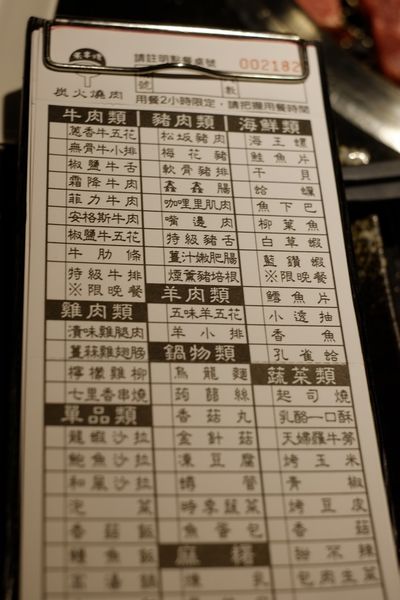 請註明點餐桌號 002182
炭火燒肉 號 數
用餐2小時限定，請把握用餐時間
牛肉類
蔥香牛五花
無骨牛小排
椒鹽牛舌
霜降牛肉
菲力牛肉
安格斯牛肉
椒鹽牛五花
牛肋條
特級牛排
※限晚餐
雞肉類
漬味雞腿肉
薑蒜雞翅膀
檸檬雞柳
七里香串燒
單品類
龍蝦沙拉
鮑魚沙拉
和風沙拉
泡菜
香菇飯
鮭魚飯
豬肉類
松坂豬肉
梅花豬
軟骨豬排
鑫鑫腸
咖哩里肌肉
嘴邊肉
特級豬舌
薑汁嫩肥腸
煙薰豬培根
羊肉類
五味羊五花
羊小排
鍋物類
烏龍麵
蒟蒻絲
香菇丸
金針菇
凍豆腐
時季蔬菜
魚蛋包
麻糬
煉乳
海鮮類
海王螺
鮭魚片
干貝
蛤蠣
魚下巴
柳葉魚
白草蝦
藍鑽蝦
※限晚餐
鱈魚片
小透抽
香魚
孔雀蛤
蔬菜類
起司燒
乳酪一口酥
天婦羅牛蒡
烤玉米
青椒
烤豆皮
香菇
甜不辣
包肉生菜